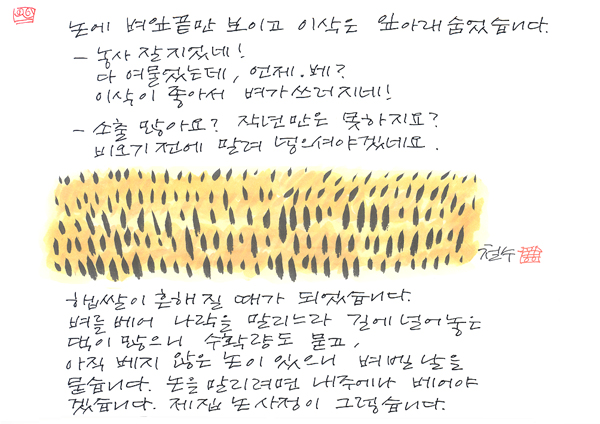 논에 벼 잎끝만 보이고 이삭은 잎아래 숨었습니다.
- 농사 잘 지었네!
다 여물었는데, 언제. 베?
이삭이 좋아서 벼가 쓰러지네!
- 소출 많아요? 작년만은 못하지요?
비오기 전에 말려 넣으셔야겠네요.
철수
햅쌀이 흔해질 때가 되었습니다.
벼를 베어 나락을 말리느라 길에 널어놓은
댁이 많으니 수확량도 묻고,
아직 베지 않은 논이 있으니 벼 벨 날을
묻습니다. 논을 말리려면 내주에나 베어야
겠습니다. 제집 논 사정이 그렇습니다.